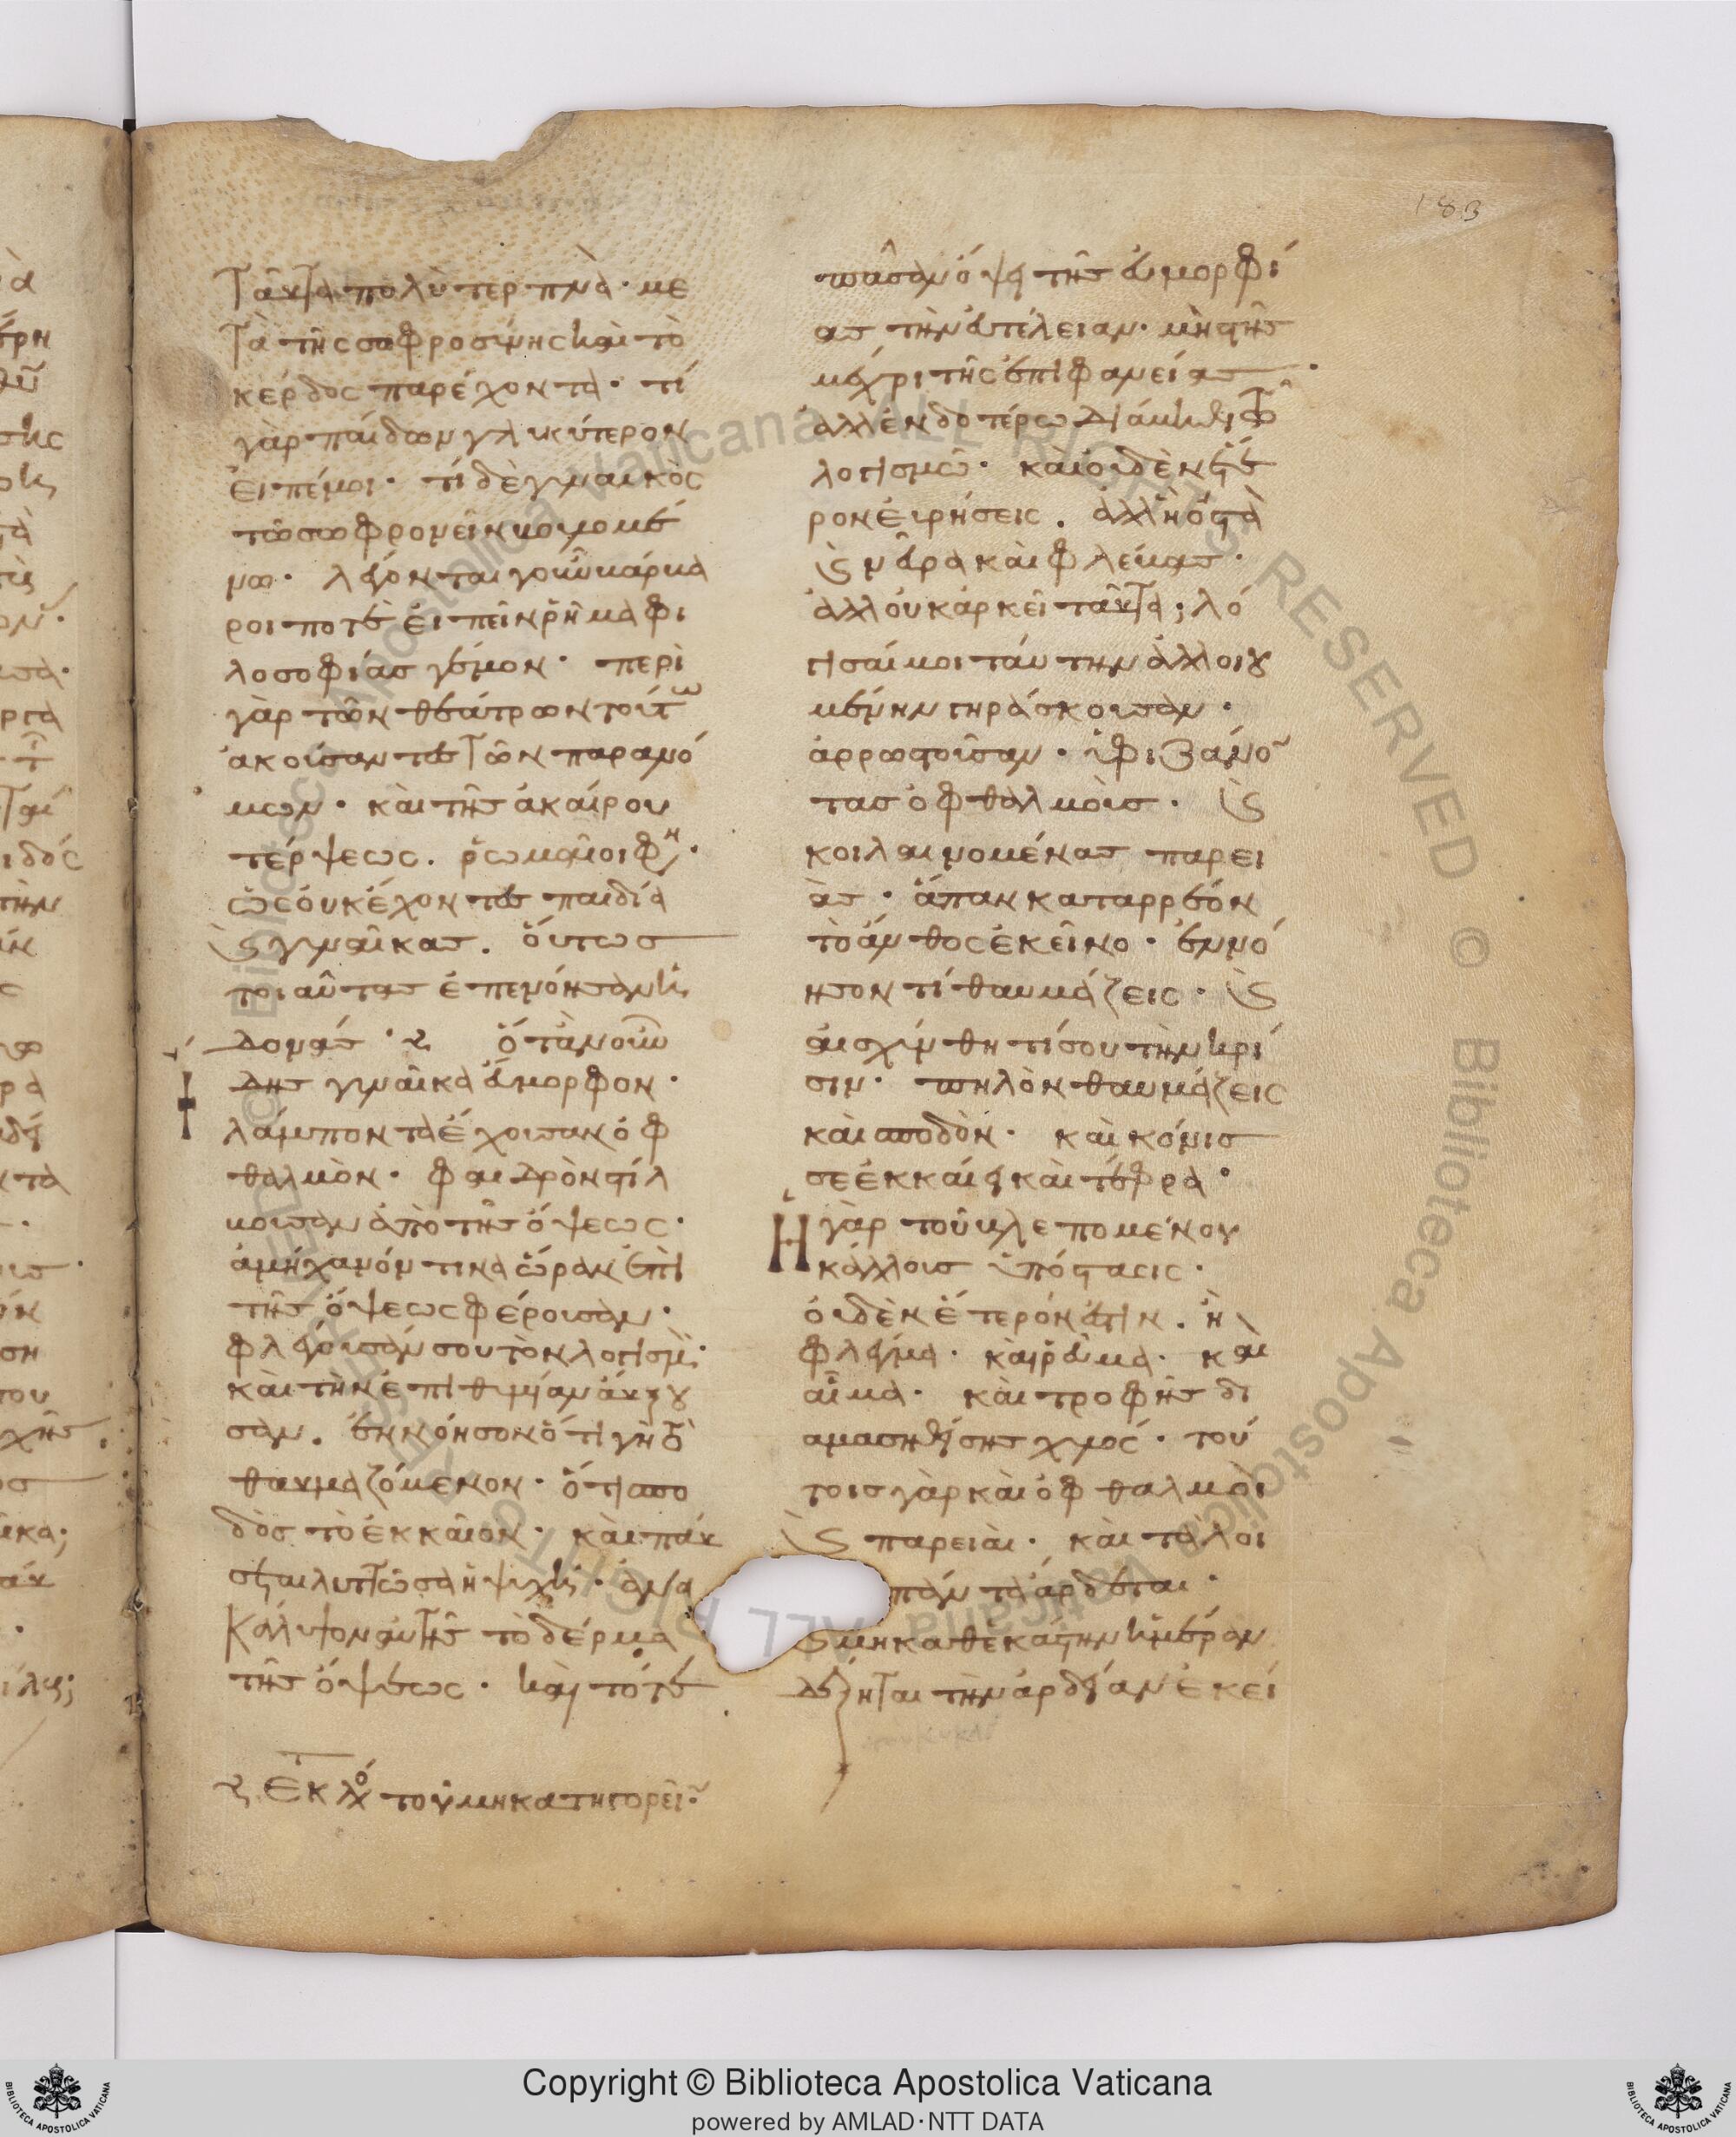 183
Ταῦτα πολὺ τερπνὰ· με
τὰ τῆς σωφροσύνης καὶ τὸ
κέρδος παρέχοντα· τί
γὰρ παίδων γλυκύτερον
εἰπέ μοι· τί δὲ γυναικὸς
τῶ σωφρονεῖν βουλομέ
νω· λέγονται γοῦν βάρβα
ροι ποτὲ εἰπεῖν ῥῆμα φι
λοσοφίας γέμον· περὶ
γὰρ τῶν θεάτρων τούτω
ἀκούσαντες τῶν παρανό
μων· καὶ τῆς ἀκαίρου
τέρψεως. ῥωμαῖοι φη·
ὡς οὐκ ἔχοντες παιδία
κ γυναῖκας. οὕτως
τοιαύτας ἐπενόησαν ἡ
δονάς· ὅταν οὖν ἴ
δης γυναῖκα ἄμορφον·
λάμποντα ἔχουσαν ὀφ
θαλμὸν· φαιδρὸν στίλ
βουσαν ἀπὸ τῆς ὄψεως·
ἀμήχανόν τινα ὥραν ἐπὶ
τῆς ὄψεως φέρουσαν·
φλέγουσάν σου τὸν λογισμὸ·
καὶ τὴν ἐπιθυμίαν αὔξου
σαν. ἐννόησον ὅτι γῆ τὸ
θαυμαζόμενον· ὅτι σπο
δὸς τὸ ἐκκαῖον· καὶ παύ
σεται λυττῶσα ἡ ψυχή· ἀνα
κάλυψον αὐτῆς τὸ δέρμα
τῆς ὄψεως· καὶ τότε
Ἐκ λόγ τοῦ μὴ κατηγορεῖ
πᾶσαν ὄψει τῆς ἀμορφί
ας τὴν εὐτέλειαν· μὴ στῆς
μέχρι τῆς ἐπιφανείας·
ἀλλ ἐνδοτέρω διάβηθι τῶ
λογισμῶ· καὶ οὐδὲν ἕτε
ρον εὑρήσεις. ἀλλ ἢ ὀστᾶ
κ νεῦρα καὶ φλέβας·
ἀλλ οὐκ ἀρκεῖ ταῦτα; λό
γισαί μοι ταύτην ἀλλοιου
μένην γηράσκουσαν·
ἀρρωστοῦσαν· ὑφιζάνον
τας ὀφθαλμοὺς· κ
κοιλαινομένας παρει
ὰς· ἅπαν καταρρέον
τὸ ἄνθος ἐκεῖνο· ἐννό
ησον τί θαυμάζεις· κ
αἰσχύνθητί σου τὴν κρί
σιν· πηλὸν θαυμάζεις
καὶ σποδὸν· καὶ κόνις
σε ἐκκαίει καὶ τέφρα·
Ἡ γὰρ τοῦ βλεπομένου
κάλλους ὑπόστασις·
οὐδὲν ἕτερόν ἐστιν. ἢ
φλέγμα· καὶ ῥεῦμα· καὶ
αἷμα· καὶ τροφῆς δι
αμασηθείσης χυμός· τού
τοις γὰρ καὶ ὀφθαλμοὶ
κ παρειαὶ· καὶ τὰ λοι
πὰ πάντα ἄρδεται·
κ μὴ καθεκάστην ἡμέραν
δέξηται τὴν ἀρδείαν ἐκεί
Copyright © Biblioteca Apostolica Vaticana
powered by AMLAD·NTT DATA